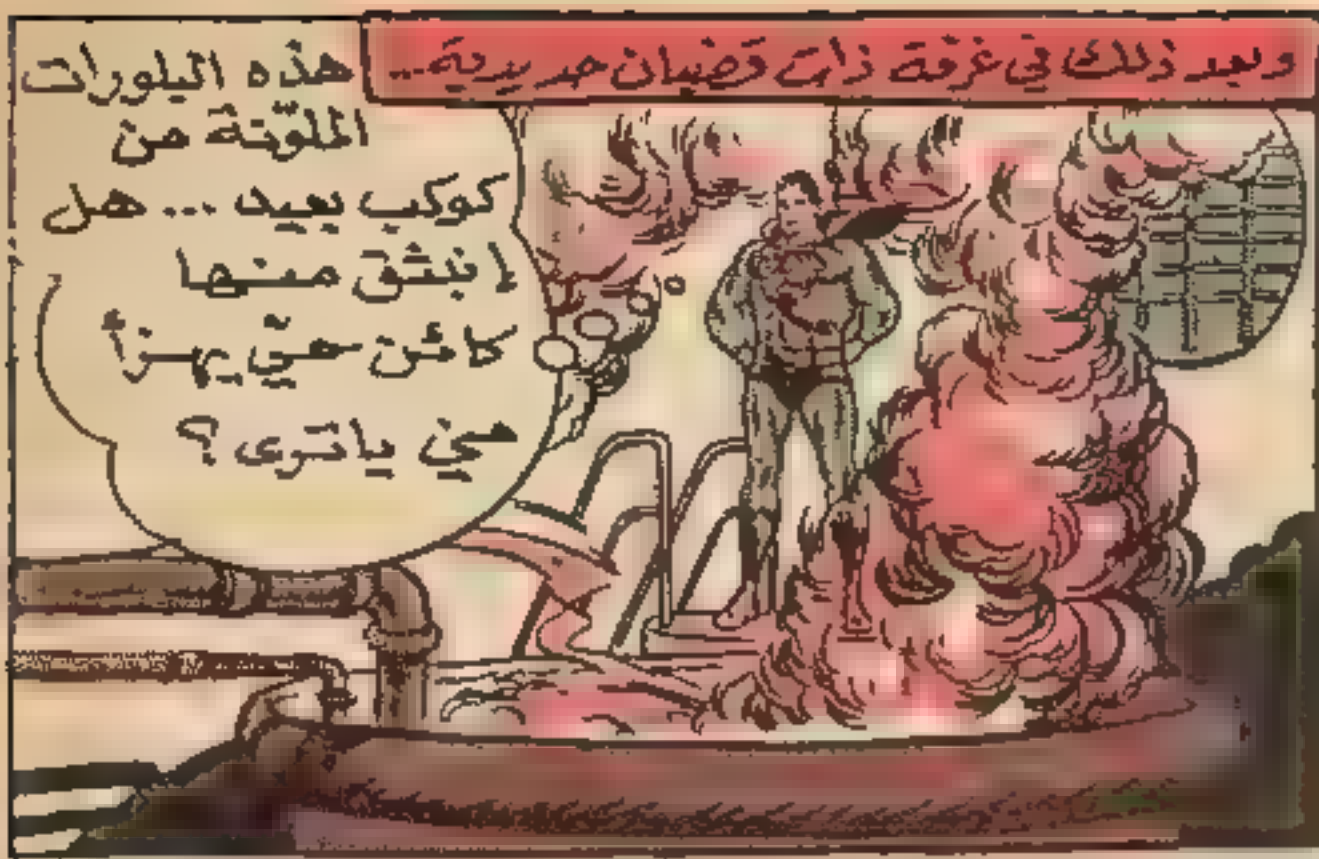 وبعد ذلك في غرفة ذات قضبان حديدية..
هذه البلورات
الملوّنة من
كوكب بعيد ... هل
إنبثق منها
كائن حيّ يهزأ
مني ياترى؟